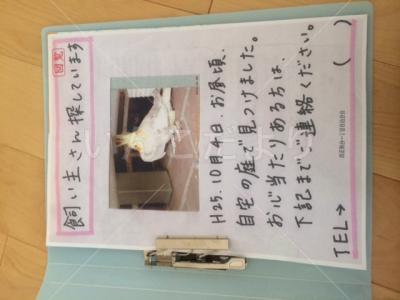 回覧
飼い主さん探しています
H25.10月4日.お昼頃.
自宅の庭で見つけました。
お心当たりあるちは
下記までご連絡ください。
TEL→ (　　)